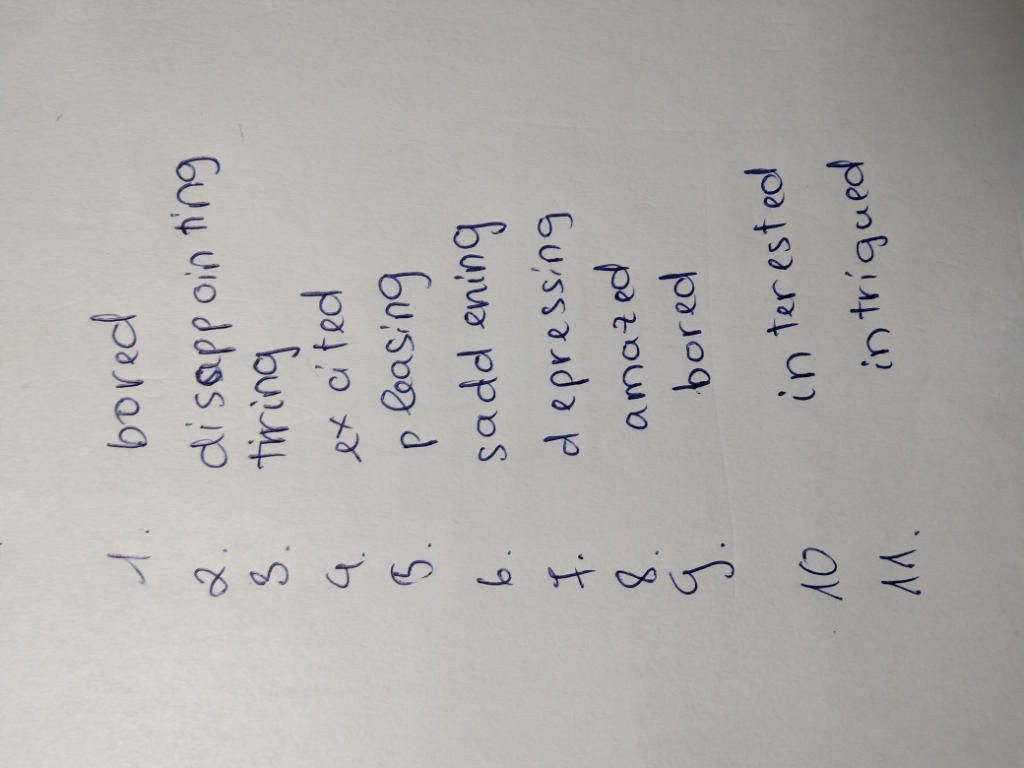 1. bored
2. disappointing
3. tiring
4. excited
5. pleasing
6. saddening
7. depressing
8. amazed
9. bored
10 interested
11. intrigued